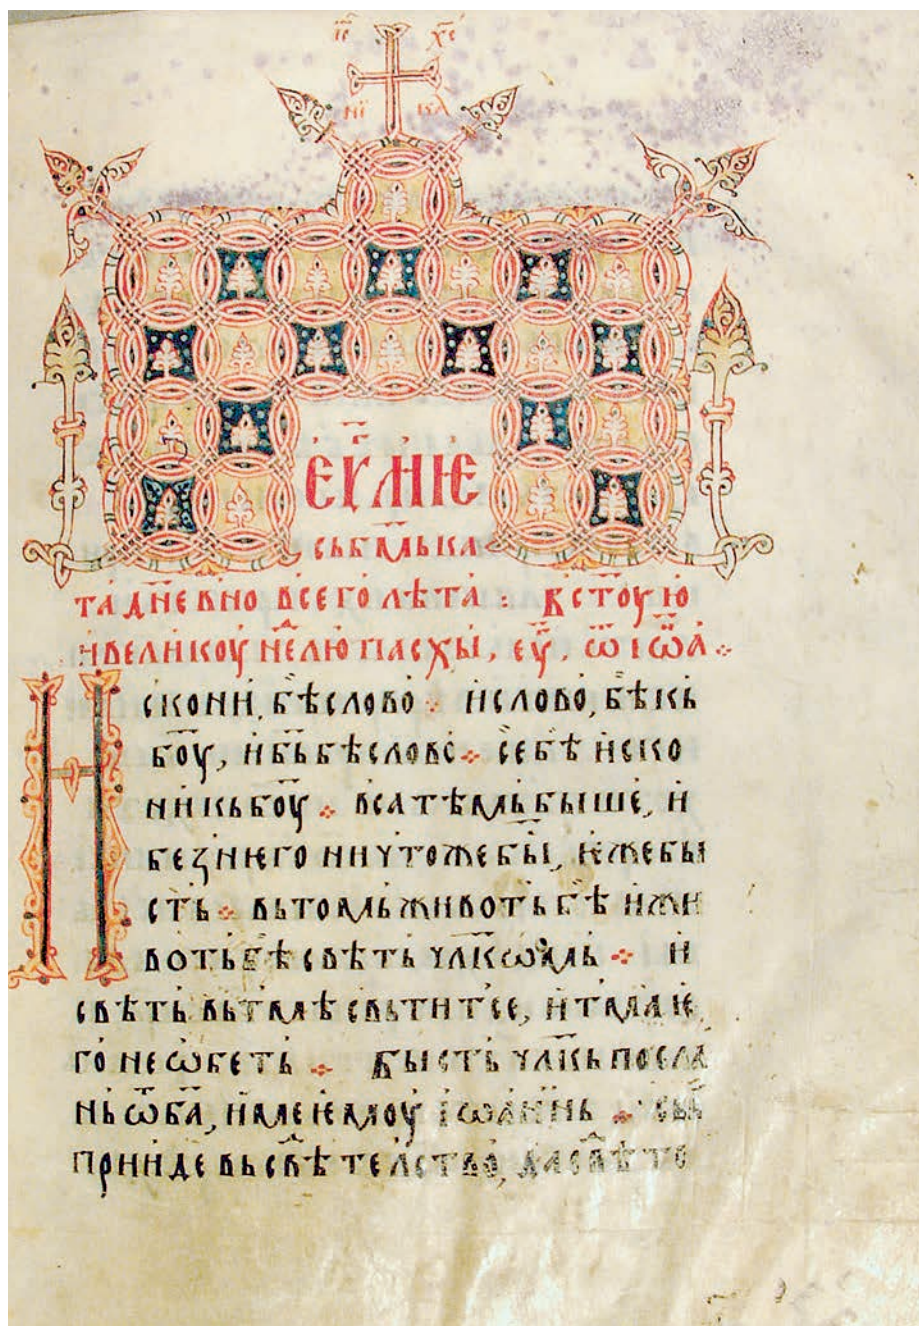 І҃С Х҃С
НІ КА
ЕѴ҃ЛИѤ
съб҃мь ка
та дн҃евно всего лѣта : в с҃тоую
и великоу н҃елю пасхы, еѵ҃, ѿ і҃ѡа ⁘
Искони, бѣ слово ⁘ и слово, бѣ кь
б҃оу, и б҃ь бѣ слово ⁘ се бѣ иско
ни кь б҃оу ⁘ вса тѣмь быше, и
без него ничтоже бы҃, ѥже бы
сть ⁘ вь томь животь бѣ и жи
воть бѣ свѣть чл҃кѡмь ⁘ и
свѣть вь тмѣ свьтит се, и тма ѥ
го не ѡбеть ⁘ Бысть чл҃кь посла
нь ѿ б҃а, име ѥмоу іѡаннь ⁘ сьи
прииде вь свѣтелство, да свѣте